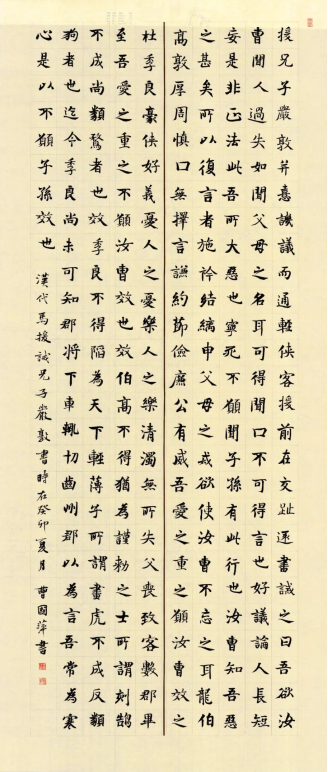 援兄子嚴敦并意譏議而通輕俠客援前在交趾還書誡之曰吾欲汝
曹聞人過失如聞父母之名耳可得聞口不可得言也好議論人長短
妄是非正法此吾所大惡也寧死不願聞子孫有此行也汝曹知吾惡
之甚矣所以復言者施衿結縭申父母之戒欲使汝曹不忘之耳龍伯
高敦厚周慎口無擇言謙約節儉廉公有威吾愛之重之願汝曹效之
杜季良豪俠好義憂人之憂樂人之樂清濁無所失父喪致客數郡畢
至吾愛之重之不願汝曹效也效伯高不得猶為謹勑之士所謂刻鵠
不成尚類鶩者也效季良不得陷為天下輕薄子所謂畫虎不成反類
狗者也迄今季良尚未可知郡將下車輒切齒州郡以為言吾常為寒
心是以不願子孫效也
漢代馬援誡兄子嚴敦書時在癸卯夏月曹國萍書